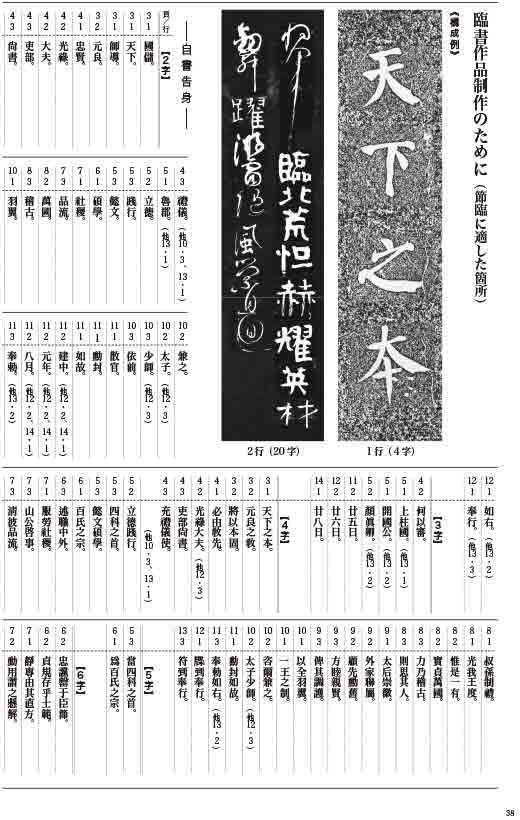 臨書作品制作のために（節臨に適した箇所）
《構成例》
天下之本
1行（4字）
臨北荒怛赫耀英材
2行（20字）
―自書告身―
頁/行【2字】
3 1 國儲。
3 1 天下。
3 1 師導。
3 2 元良。
4 1 忠賢。
4 2 光祿。
4 2 大夫。
4 3 吏部。
4 3 尚書。
4 3 禮儀。（他10・3、13・1）
5 1 魯郡。（他13・1）
5 2 立德。
5 3 踐行。
5 3 懿文。
6 1 碩學。
7 1 社稷。
7 3 品流。
8 2 萬國。
8 3 稽古。
10 1 羽翼。
10 2 兼之。
10 2 太子。（他12・3）
10 3 少師。（他12・3）
10 3 依前。
11 1 散官。
11 1 勳封。
11 1 如故。
11 2 建中。（他12・2、14・1）
11 2 元年。（他12・2、14・1）
11 2 八月。（他12・2、14・1）
11 3 奉勅。（他13・2）
12 1 如右。（他13・2）
12 1 奉行。（他13・3）
【3字】
4 2 何以審。
5 1 上柱國。（他13・1）
5 1 開國公。（他13・2）
5 2 顏眞卿。（他13・2）
11 2 廿五日。
12 2 廿六日。
14 1 廿八日。
【4字】
3 1 天下之本。
3 2 元良之教。
3 2 將以本固。
4 1 必由教先。
4 2 光祿大夫。（他12・3）
4 3 吏部尚書。
4 3 充禮儀使。（他10・3、13・1）
5 2 立德踐行。
5 3 四科之首。
5 3 懿文碩學。
6 1 百氏之宗。
6 3 述職中外。
7 1 服勞社稷。
7 3 山公啓事。
7 3 清彼品流。
8 1 叔孫制禮。
8 1 光我王度。
8 2 惟是一有。
8 2 實貞萬國。
8 3 力乃稽古。
8 3 則思其人。
9 1 太后崇徽。
9 2 外家聯屬。
9 2 顧先勳舊。
9 3 方睦親賢。
9 3 俾其調護。
10 1 以全羽翼。
10 1 一王之制。
10 2 咨爾兼之。
10 2 太子少師。（他12・3）
11 1 勳封如故。
11 3 奉勅如右。（他13・2）
12 1 牒到奉行。
13 3 符到奉行。
【5字】
5 3 當四科之首。
6 1 爲百氏之宗。
【6字】
6 2 忠讜罄于臣節。
6 2 貞規存乎士範。
7 1 靜專由其直方。
7 2 動用謂之懸解。
38